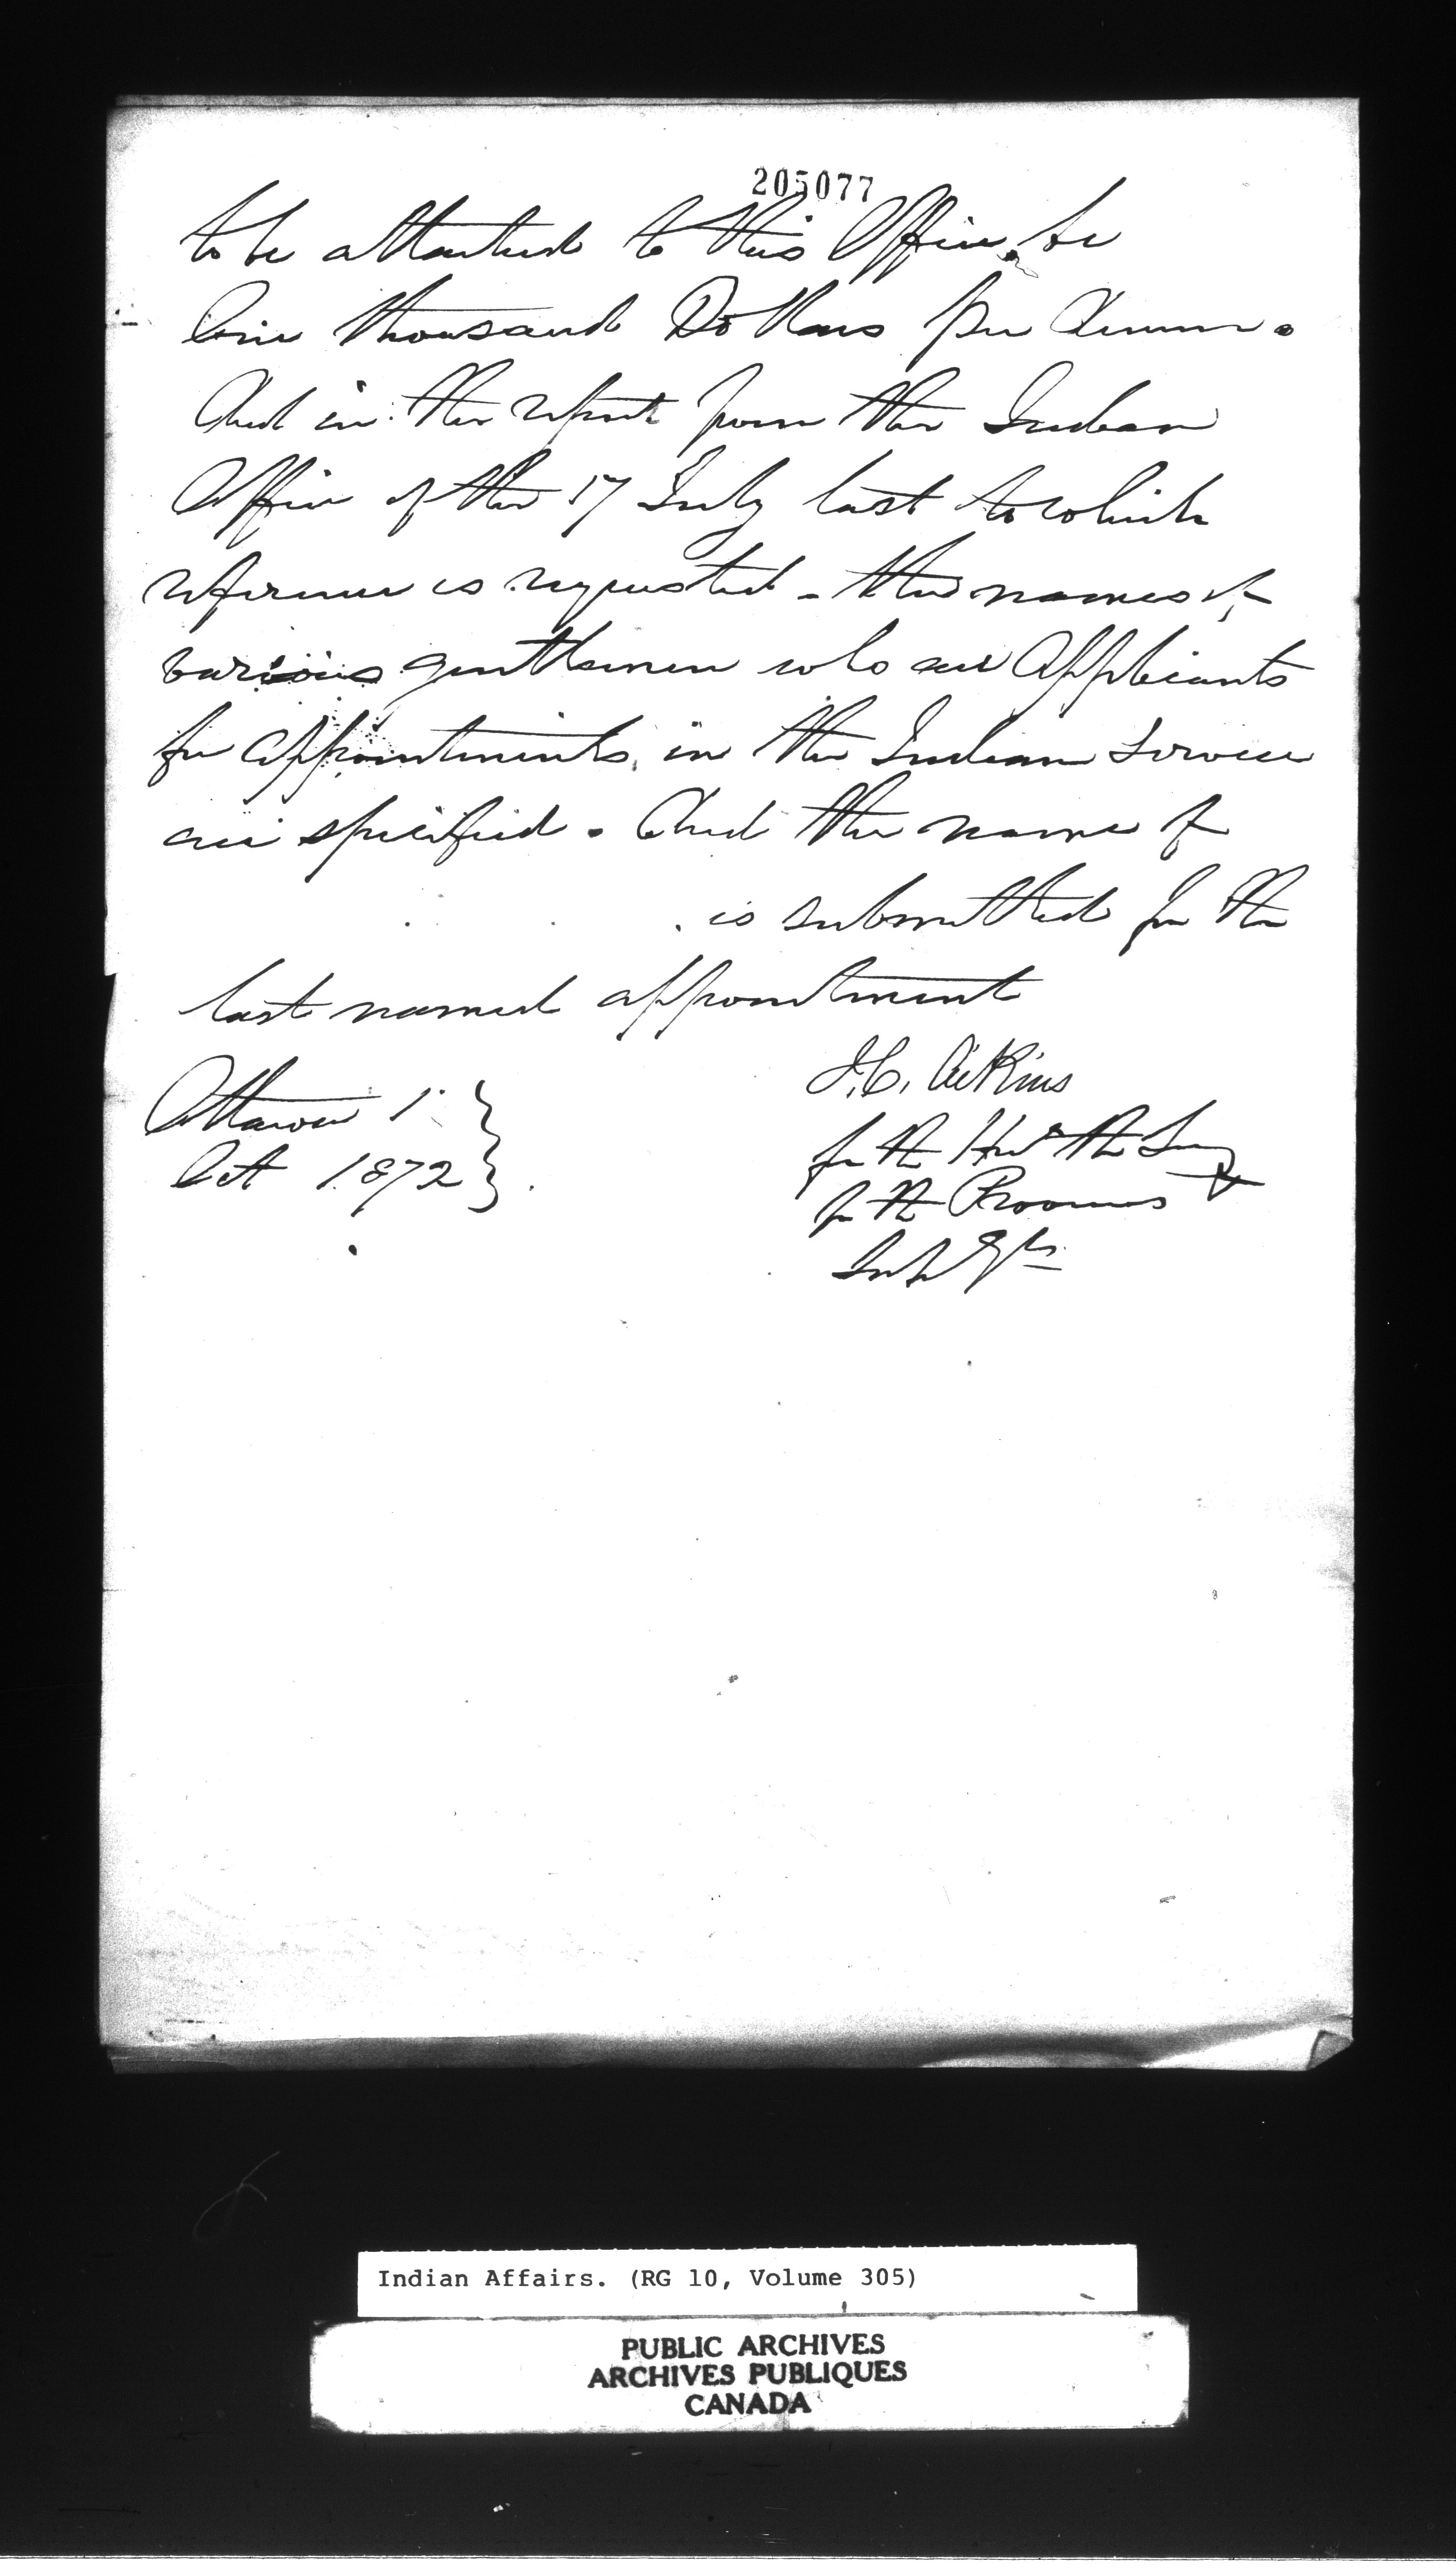 205077
to be attached to this Office, be
One thousand Dollars per Annum.
And in the report from the Indian
Office of the 17 July last to which
reference is requested - the names of
various gentlemen who are Applicants
for appointments in the Indian Service
are specified. And the name of
is submitted for the
last named appointment
J.C. Aikins
Ottawa 1
Oct 1872
for the Hon the Secy
for the Provinces
Indian Affairs. (RG 10, Volume 305)
PUBLIC ARCHIVES
ARCHIVES PUBLIQUES
CANADA